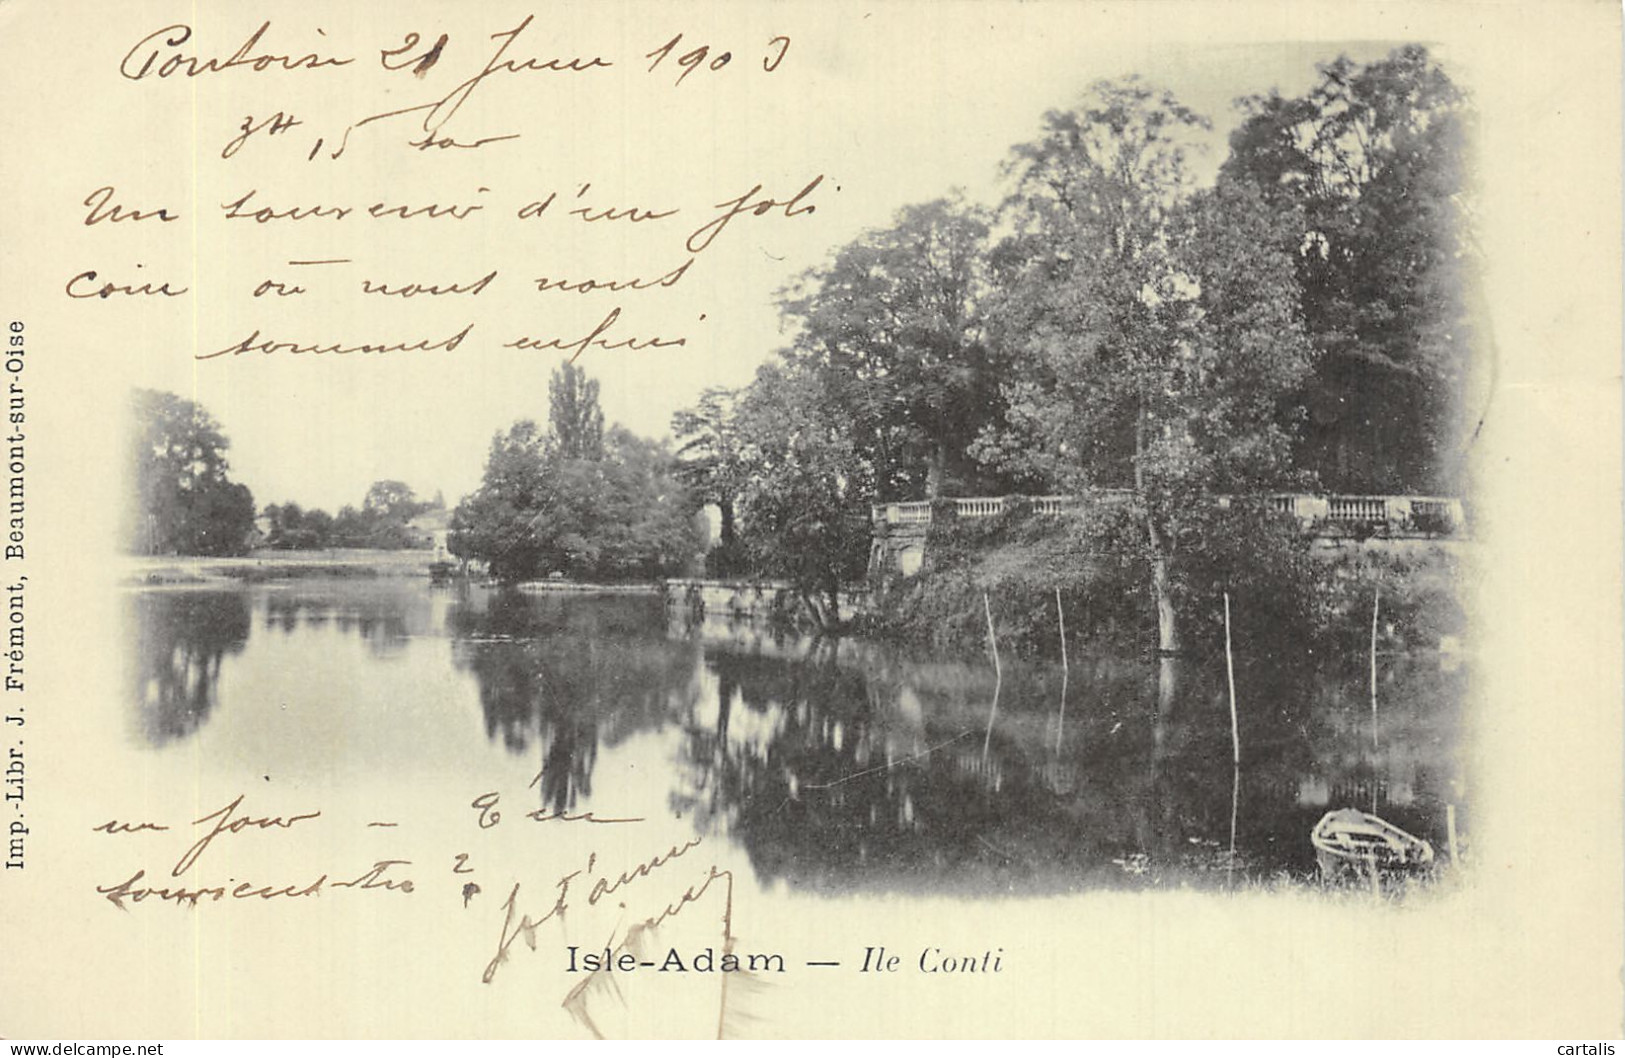 Pontoise 21 Juin 1903
3H 15 soir
Un souvenir d'un joli
coin où nous nous
sommes enfuis
un jour - T'en
souviens-tu ?
Je t'aime
Imp.-Libr. J. Frémont, Beaumont-sur-Oise
Isle-Adam — Ile Conti
cartalis
www.delcampe.net